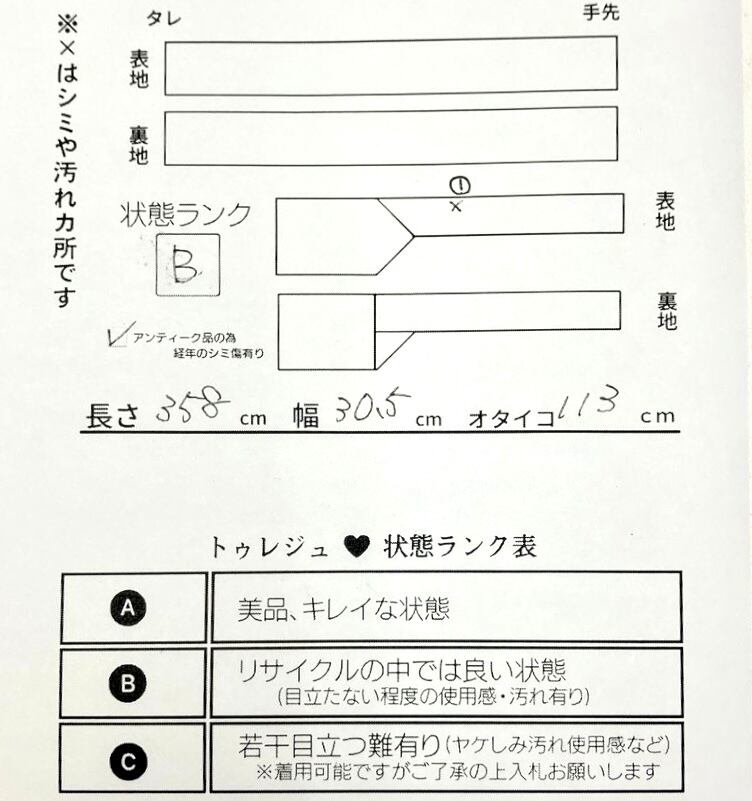 ※×はシミや汚れカ所です
タレ 手先
表地
裏地
①
×
表地
状態ランク
B
裏地
✓アンティーク品の為
経年のシミ傷有り
長さ 358 cm 幅 30.5 cm オタイコ 113 cm
トゥレジュ ♥ 状態ランク表
A 美品、キレイな状態
B リサイクルの中では良い状態
(目立たない程度の使用感・汚れ有り)
C 若干目立つ難有り(ヤケしみ汚れ使用感など)
※着用可能ですがご了承の上入札お願いします